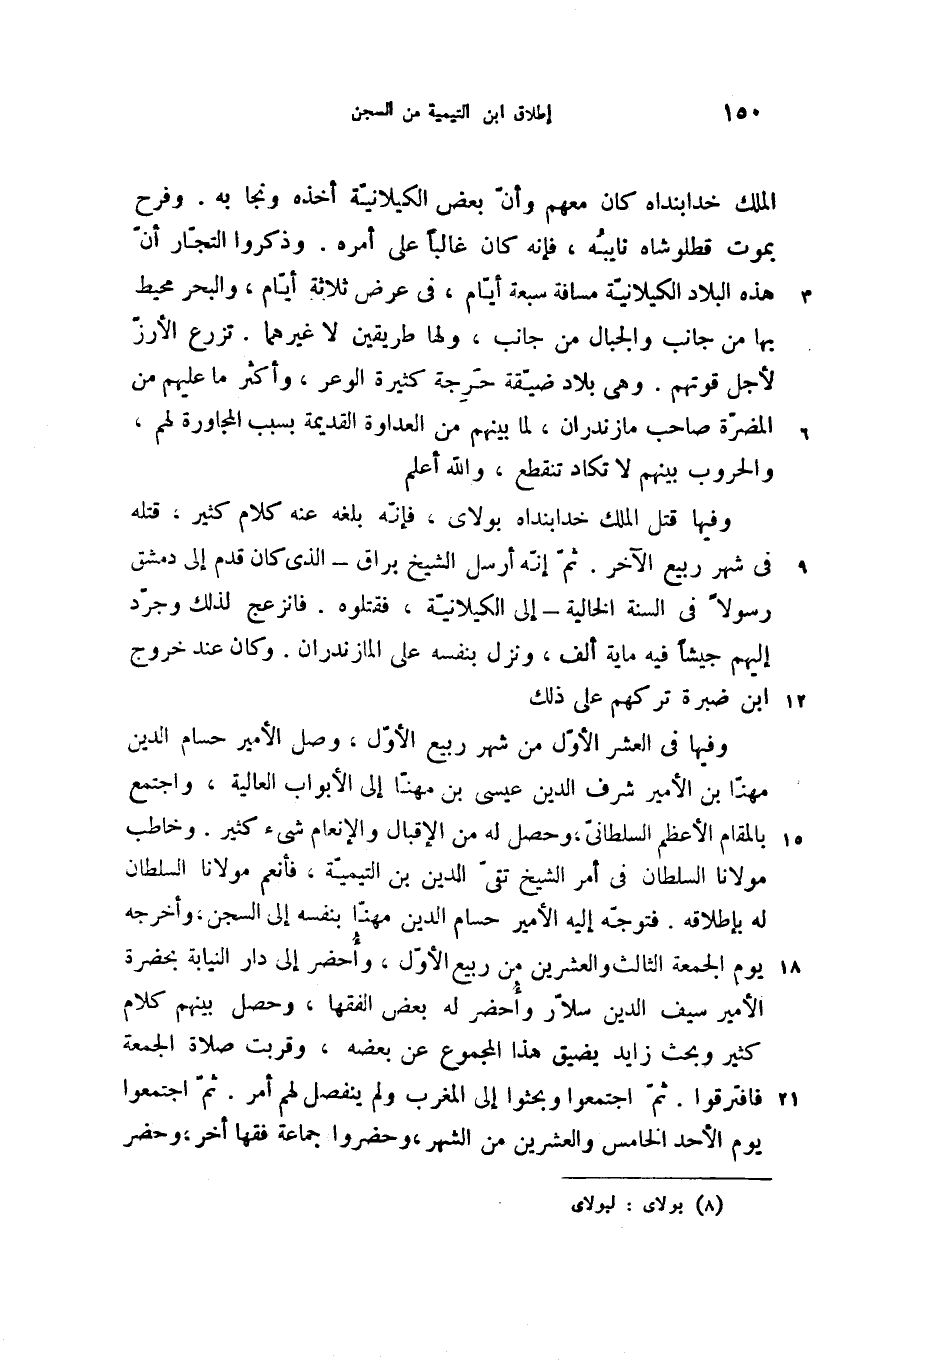 ١٥٠ إطلاق ابن التيمية من السجن
الملك خدابنداه كان معهم وأنّ بعض الكيلانيّة أخذه ونجا به . وفرح
بموت قطلوشاه نايبُه ، فإنه كان غالباً على أمره . وذكروا التجّار أنّ
٣ هذه البلاد الكيلانيّة مسافة سبعة أيّام ، فى عرض ثلاثة أيّام ، والبحر محيط
بها من جانب والجبال من جانب ، ولها طريقين لا غيرهما . تزرع الأرزّ
لأجل قوتهم . وهى بلاد ضيّقة حَرِجة كثيرة الوعر ، وأكثر ما عليهم من
٦ المضرّة صاحب مازندران ، لما بينهم من العداوة القديمة بسبب المجاورة لهم ،
والحروب بينهم لا تكاد تنقطع ، والله أعلم
وفيها قتل الملك خدابنداه بولاى ، فإنّه بلغه عنه كلام كثير ، قتله
٩ فى شهر ربيع الآخر . ثمّ إنّه أرسل الشيخ براق – الذى كان قدم إلى دمشق
رسولاً فى السنة الخالية – إلى الكيلانيّة ، فقتلوه . فانزعج لذلك وجرّد
إليهم جيشاً فيه ماية ألف ، ونزل بنفسه على المازندران . وكان عند خروج
١٢ ابن ضبرة تركهم على ذلك
وفيها فى العشر الأوّل من شهر ربيع الأوّل ، وصل الأمير حسام الدين
مهنّا بن الأمير شرف الدين عيسى بن مهنّا إلى الأبواب العالية ، واجتمع
١٥ بالمقام الأعظم السلطانىّ ، وحصل له من الإقبال والإنعام شىء كثير . وخاطب
مولانا السلطان فى أمر الشيخ تقىّ الدين بن التيميّة ، فأنعم مولانا السلطان
له بإطلاقه . فتوجّه إليه الأمير حسام الدين مهنّا بنفسه إلى السجن ، وأخرجه
١٨ يوم الجمعة الثالث والعشرين من ربيع الأوّل ، وأُحضر إلى دار النيابة بحضرة
الأمير سيف الدين سلاّر وأُحضر له بعض الفقها ، وحصل بينهم كلام
كثير وبحث زايد يضيق هذا المجموع عن بعضه ، وقربت صلاة الجمعة
٢١ فافترقوا . ثمّ اجتمعوا وبحثوا إلى المغرب ولم ينفصل لهم أمر . ثمّ اجتمعوا
يوم الأحد الخامس والعشرين من الشهر ، وحضروا جماعة فقها أخر ، وحضر
(٨) بولاى : لبولاى